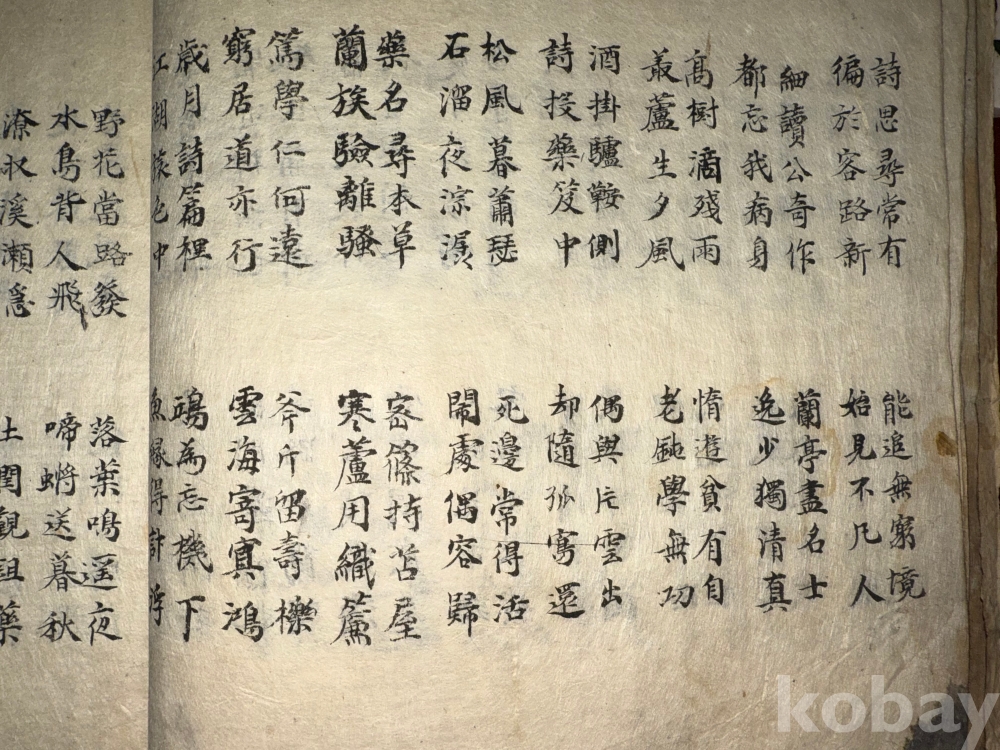 詩思尋常有
徧於客路新
能追無窮境
始見不凡人
細讀公奇作
都忘我病身
蘭亭盡名士
逸少獨清真
高樹滴殘雨
蘆生夕風
惰遊貧有自
老鈍學無功
酒掛驢鞍側
詩投藥笈中
偶與片雲出
却隨孤鶩還
松風暮蕭瑟
石溜夜淙潺
死邊常得活
閙處偶容歸
藥名尋本草
蘭族驗離騷
密篠持苫屋
寒蘆用織簾
篤學仁何遠
窮居道亦行
斧斤留壽櫟
雲海寄冥鴻
歲月詩篇裡
江湖色中
鷗為忘機下
魚緣得計浮
野花當路發
水鳥背人飛
落葉鳴遙夜
啼螿送暮秋
潦收溪瀨
土藥
kobay